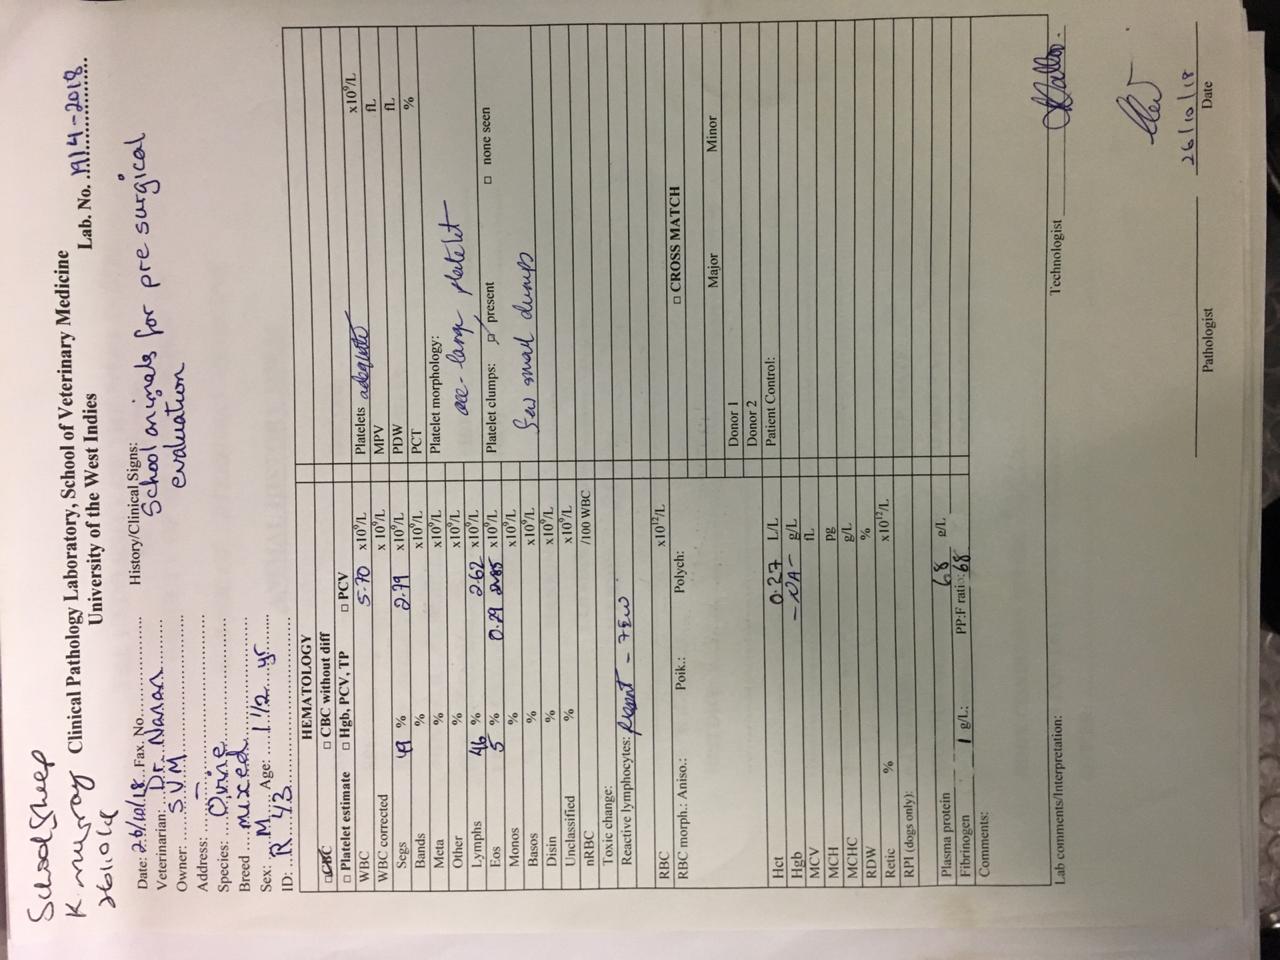 School Sheep
K. murray
Clinical Pathology Laboratory, School of Veterinary Medicine
University of the West Indies
Lab. No. 1914-2018
Date: 26/10/18 Fax. No.
Veterinarian: Dr. Nanan
Owner: SVM
Address: –
Species: Ovine
Breed mixed
Sex: M Age: 1 1/2 yr
ID: R 43
History/Clinical Signs:
School animals for pre surgical
evaluation
HEMATOLOGY
□ CBC □ CBC without diff
□ Platelet estimate □ Hgb, PCV, TP □ PCV
WBC 5.70 x10⁹/L
WBC corrected x 10⁹/L
Segs 49 % 2.79 x10⁹/L
Bands % x10⁹/L
Meta % x10⁹/L
Other % x10⁹/L
Lymphs 46 % 2.62 x10⁹/L
Eos 5 % 0.29 x10⁹/L
Monos % x10⁹/L
Basos % x10⁹/L
Disin % x10⁹/L
Unclassified % x10⁹/L
nRBC /100 WBC
Toxic change:
Reactive lymphocytes: Present – few
RBC x10¹²/L
RBC morph.: Aniso.: Poik.: Polych:
Hct 0.27 L/L
Hgb –NA– g/L
MCV fL
MCH pg
MCHC g/L
RDW %
Retic % x10¹²/L
RPI (dogs only):
Plasma protein 68 g/L
Fibrinogen 1 g/L: PP:F ratio: 68
Comments:
Platelets adequate x10⁹/L
MPV fL
PDW fL
PCT %
Platelet morphology:
occ- large platelet
Platelet clumps: □ present □ none seen
few small clumps
□ CROSS MATCH
Major Minor
Donor 1
Donor 2
Patient Control:
Lab comments/Interpretation:
Technologist
Pathologist
26/10/18
Date